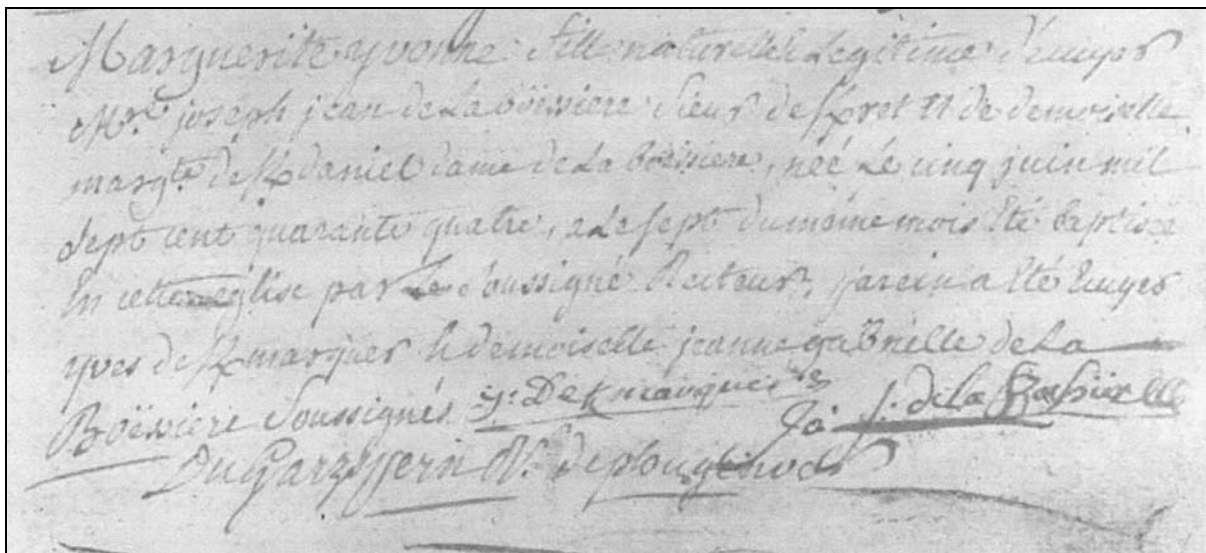 Marguerite yvonne fille naturelle et Legitime d'Ecuyer
Mre joseph jean de La boëssiere Sieur de Kpret et de demoiselle
margte de Kdaniel dame de La boëssiere, néé Le cinq juin mil
Sept cent quarante quatre, a Le sept du même mois Eté baptisée
En cette église par Le Soussigné Recteur, parein a Eté Ecuyer
yves de Kmarquer Et demoiselle jeanne gabrielle de La
Boëssiere Soussignés y: De Kmarquer
J: de La Boëssiere
Du Garzspern Rr de plougonven